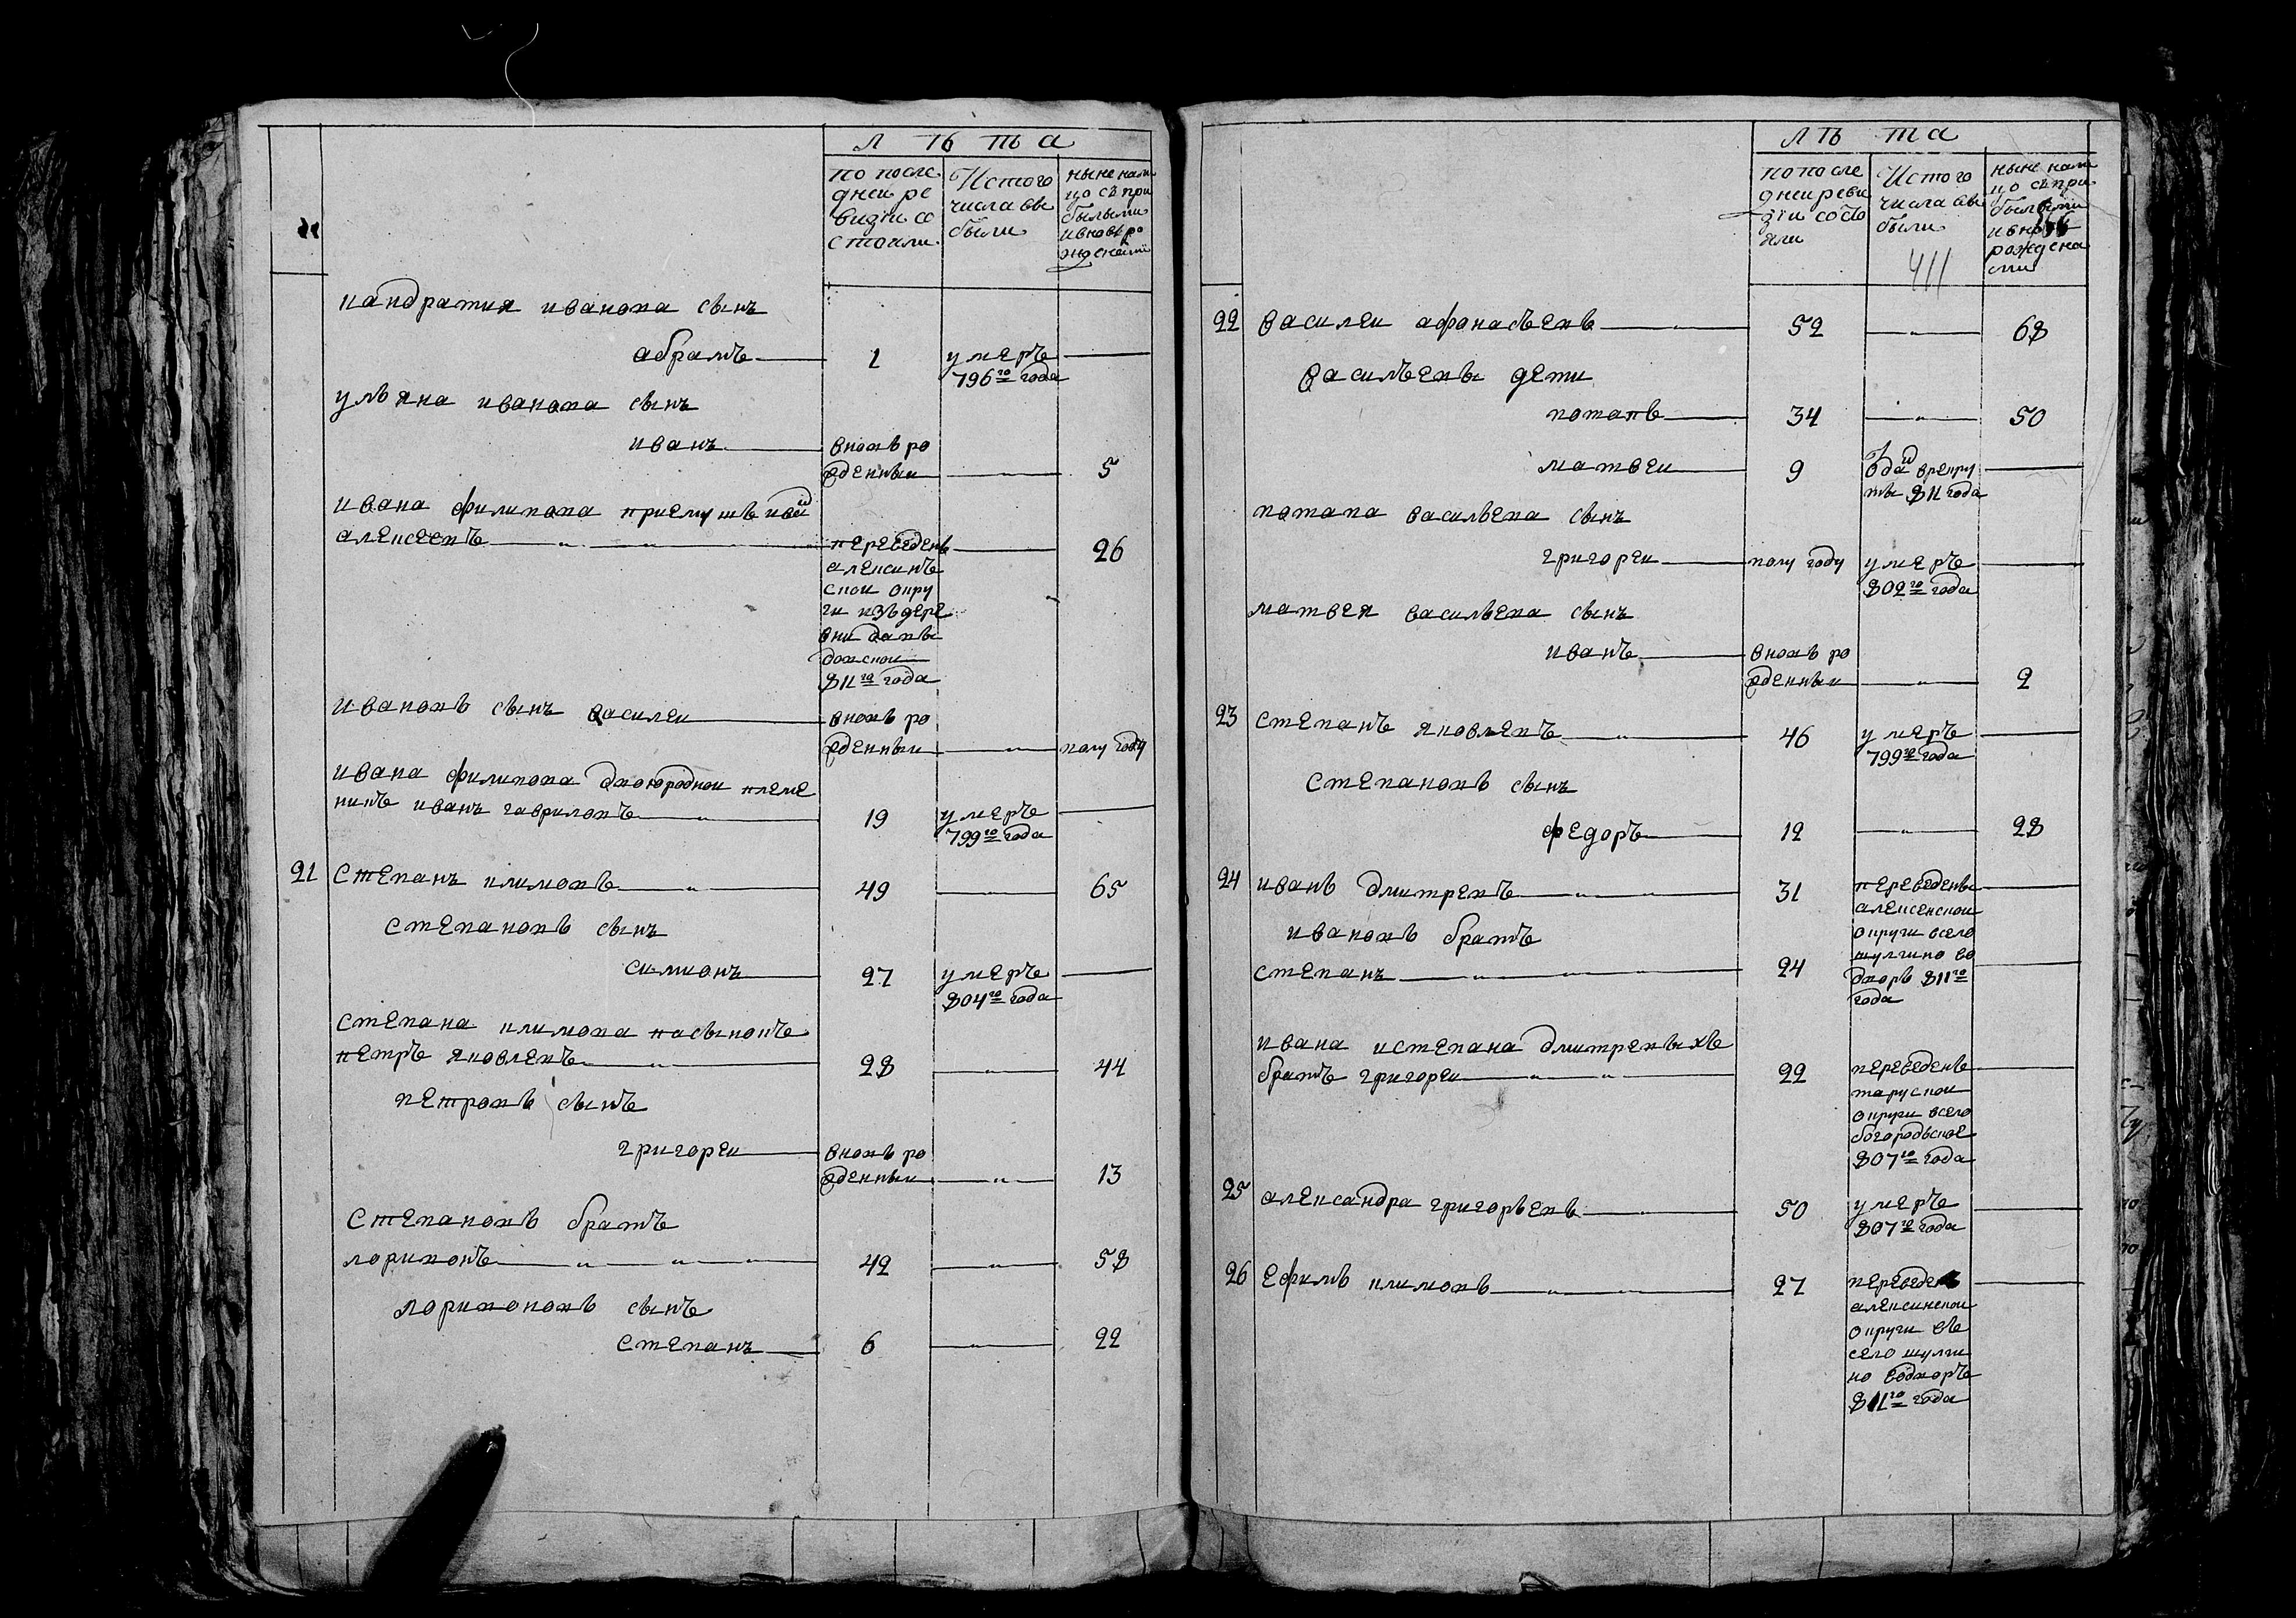 лѣта
по после
дней ре
визии со
стояли
Истого
числа вы
были
ныне нали
цо съ при
былыми
ивновъ ро
жденными
кандратия иванова сынъ
абрамъ 1 умеръ
796го года
ульяна иванова сынъ
иванъ вновь ро
жденныи 5
ивана филипова приемышъ ива
алексеевъ переведенъ 26
алексинъ
скои окру
ги изъ дере
вни
811го года
ивановъ сынъ василеи вновь ро
жденныи полу году
ивана филипова двоюроднои племе
никъ иванъ гавриловъ 19 умеръ
799го года
21 степанъ климовъ 49 65
степановъ сынъ
симионъ 27 умеръ
804го года
степана климова пасынокъ
петръ яковлевъ 28 44
петровъ сынъ
григореи вновь ро
жденныи 13
степановъ братъ
ларионъ 42 58
ларионовъ сынъ
степанъ 6 22
лѣта
по после
дней реви
зiи состо
яли
Истого
числа вы
были
411
ныне нали
цо съ при
былыми
ивновъ
рождена
ми
22 василеи афонасьевъ 52 68
васильевы дети
потапъ 34 50
матвеи 9 одан врекру
ты 811 года
потапа васильева сынъ
григореи полу году умеръ
802го года
матвея васильева сынъ
иванъ вновь ро
жденныи 2
23 степанъ яковлевъ 46 умеръ
799го года
степановъ сынъ
федоръ 12 28
24 иванъ дмитревъ 31 переведены
алексенскои
ивановъ братъ округи всело
шулгино во
степанъ 24 дворъ 811го
года
ивана истепана дмитревыхъ
братъ григореи 22 переведенъ
тарускои
округи всело
богородское
807го года
25 александра григорьевъ 50 умеръ
807го года
26 ефимъ климовъ 27 переведенъ
алексинскои
округи въ
село шулги
но водворъ
811го года